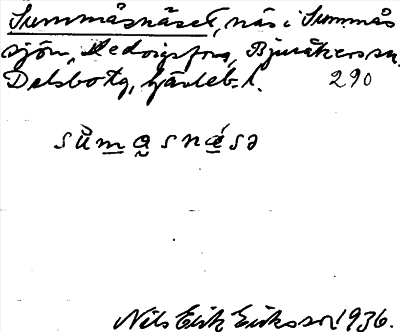 Summåsnäset, näs i Summås
sjön, Hedvigsfors, Bjuråkers sn,
Delsbo tg, Gävleb. l. 290
sů̀masnǽsə
Nils Erik Eriksson 1936.